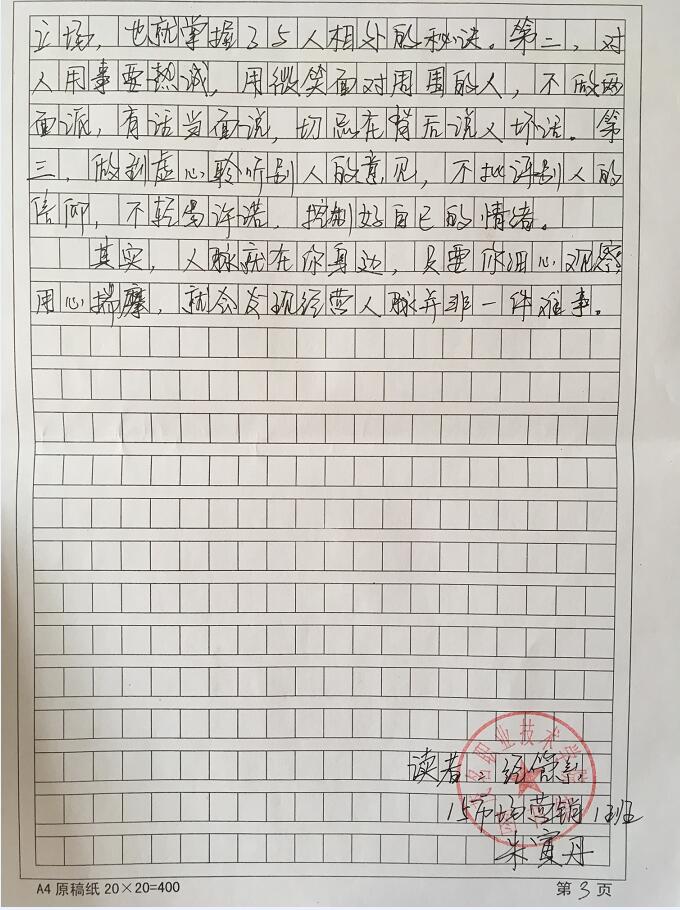 立场，也就掌握了与人相处的秘诀。第二，对
人用事要热诚，用微笑面对周围的人，不做两
面派，有话当面说，切忌在背后说人坏话。第
三，做到虚心聆听别人的意见，不批评别人的
信仰，不轻易许诺，控制好自己的情绪。
其实，人脉就在你身边，只要你细心观察
用心揣摩，就会发现经营人脉并非一件难事。
职业技术学
读者：经管系
15市场营销1班
朱寅丹
A4原稿纸 20×20=400
第 3 页